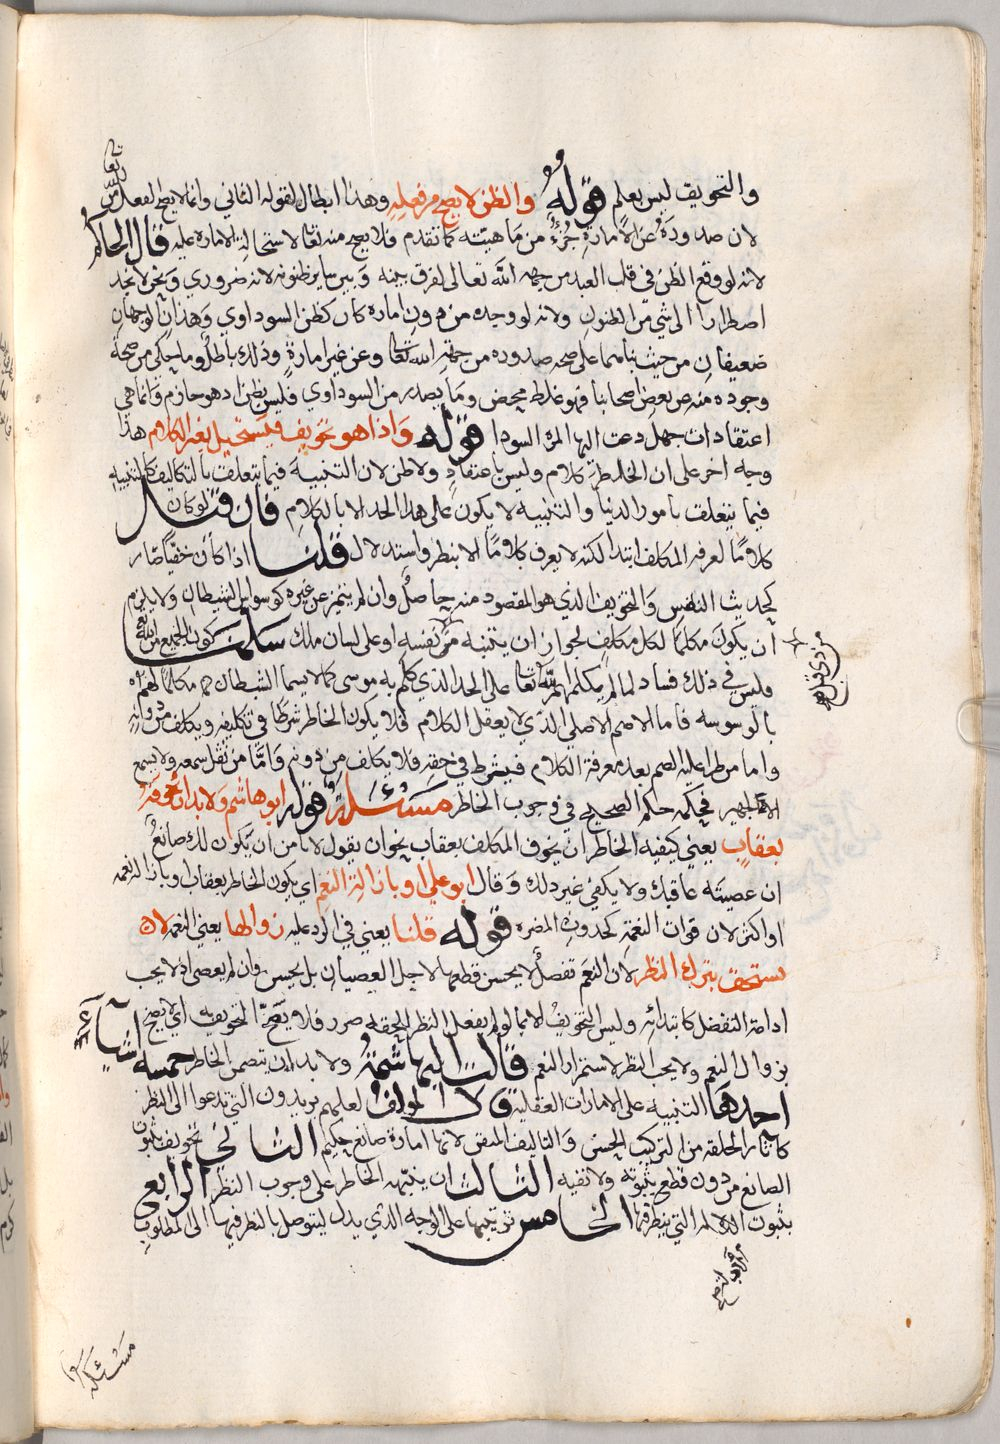 والتخويف ليس بعلم قوله والظن لا يصح من فعله وهذا ابطال لقوله الثاني وانما لا يصح الفعل من الله تعا
لان صدوره عن الامارة جزء من ماهيته كما تقدم فلا يصح منه تعا لاستحالة الامارة عليه قال الحاكم
لانه لو وقع الظن في قلب العبد من جهه الله تعالى لفرق بينه وبين ساير ظنونه لانه ضروري ونحن لا نجد
اضطرارا الى شي من الظنون ولانه لو وجده من دون امارة كان كظن السوداوي وهذان الوجهان
ضعيفان من حيث بناهما على صحه صدوره من جهة الله تعا وعن غير امارة وذلك باطل وما يحكى من صحة
وجوده منه عن بعض اصحابنا فهو غلط محض وما يصدر من السوداوي فليس بظن اذ هو حازم وانما هي
اعتقادات جهل دعت اليها المره السودا قوله واذا هو تخويف فيستحيل بغير الكلام هذا
وجه اخر على ان الخاطر كلام وليس باعتقاد ولا ظن لان التنبيه فيما يتعلق بالتكاليف كالتنبيه
فيما يتعلق بامور الدنيا والتنبيه لا يكون على هذا الحد الا بالكلام فان قيل لو كان
كلامًا لعرفه المكلف ابتدا لكنه لا يعرف كلامًا الا بنظر واستدلال قلنا اذا كان خفيًا صار
كحديث النفس والتخويف الذي هو المقصود منه حاصل وان لم يتميز عن غيره كوسواس الشيطان ولا يلزم
ان يكون مكلمًا لكل مكلف لجواز ان يتنبه من نفسه او على لسان ملك سلمنا كون الجميع من الله تعا
فليس في ذلك فساد لما لم يكلمهم الله تعا على الحد الذي كلم به موسى كما لا يسما الشيطان مكلمًا لهم
بالوسوسه فاما الاصم الاصلي الذي لا يعقل الكلام فلا يكون الخاطر شرطًا في تكليفه ويكلف من دونه
واما من طرا عليه الصمم بعد معرفة الكلام فيشرط في حقه فلا يكلف من دونه وامّا من ثقل سمعه ولا يسمع
الا الجهير فحكمه حكم الصحيح في وجوب الخاطر مسئلة قوله ابو هاشم ولا بد ان يخوفه
بعقاب يعني كيفيه الخاطر ان يخوف المكلف بعقاب نحو ان يقول لا تامن ان يكون لك صانعٌ
ان عصيته عاقبك ولا يكفي غير ذلك وقال ابو علي او بازالة النعم اي يكون الخاطر بعقاب او بازاله نعمه
او اكثر لان فوات النعمة كحدوث المضره قوله قلنا يعني في الرد عليه زوالها يعني النعمه لا
يستحق بترك النظر لان النعم تفضلٌ لا يحسن قطعها لاجل العصيان بل يحسن وان لم يعص اذ لا يجب
ادامة التفضل كابتدائه وليس التخويف الا بما لو لم يفعل النظر لحقه ضرر فلا يصحّ التخويف اي لا يصح
بزوال النعم ولا يجب النظر لاستمرار النعم قالت البهاشمة ولا بد ان يتضمن الخاطر خمسه اشيآء
احدها التنبيه على الامارات العقليه قال المولف لعلهم يريدون التي تدعوا الى النظر
كاثار الخلقه من التركيب الحسن والتاليف المتقن لانها امارة صانع حكيم الثاني تخويف بثبوت
الصانع من دون قطع بثبوته ولا نفيه الثالث ان ينبهه الخاطر على وجوب النظر الرابع
بثبوت الادله التي ينظر فيها الخامس ترتيبها على الوجه الذي يدل ليتوصل بالنظر فيها الى المطلوب
مسئله